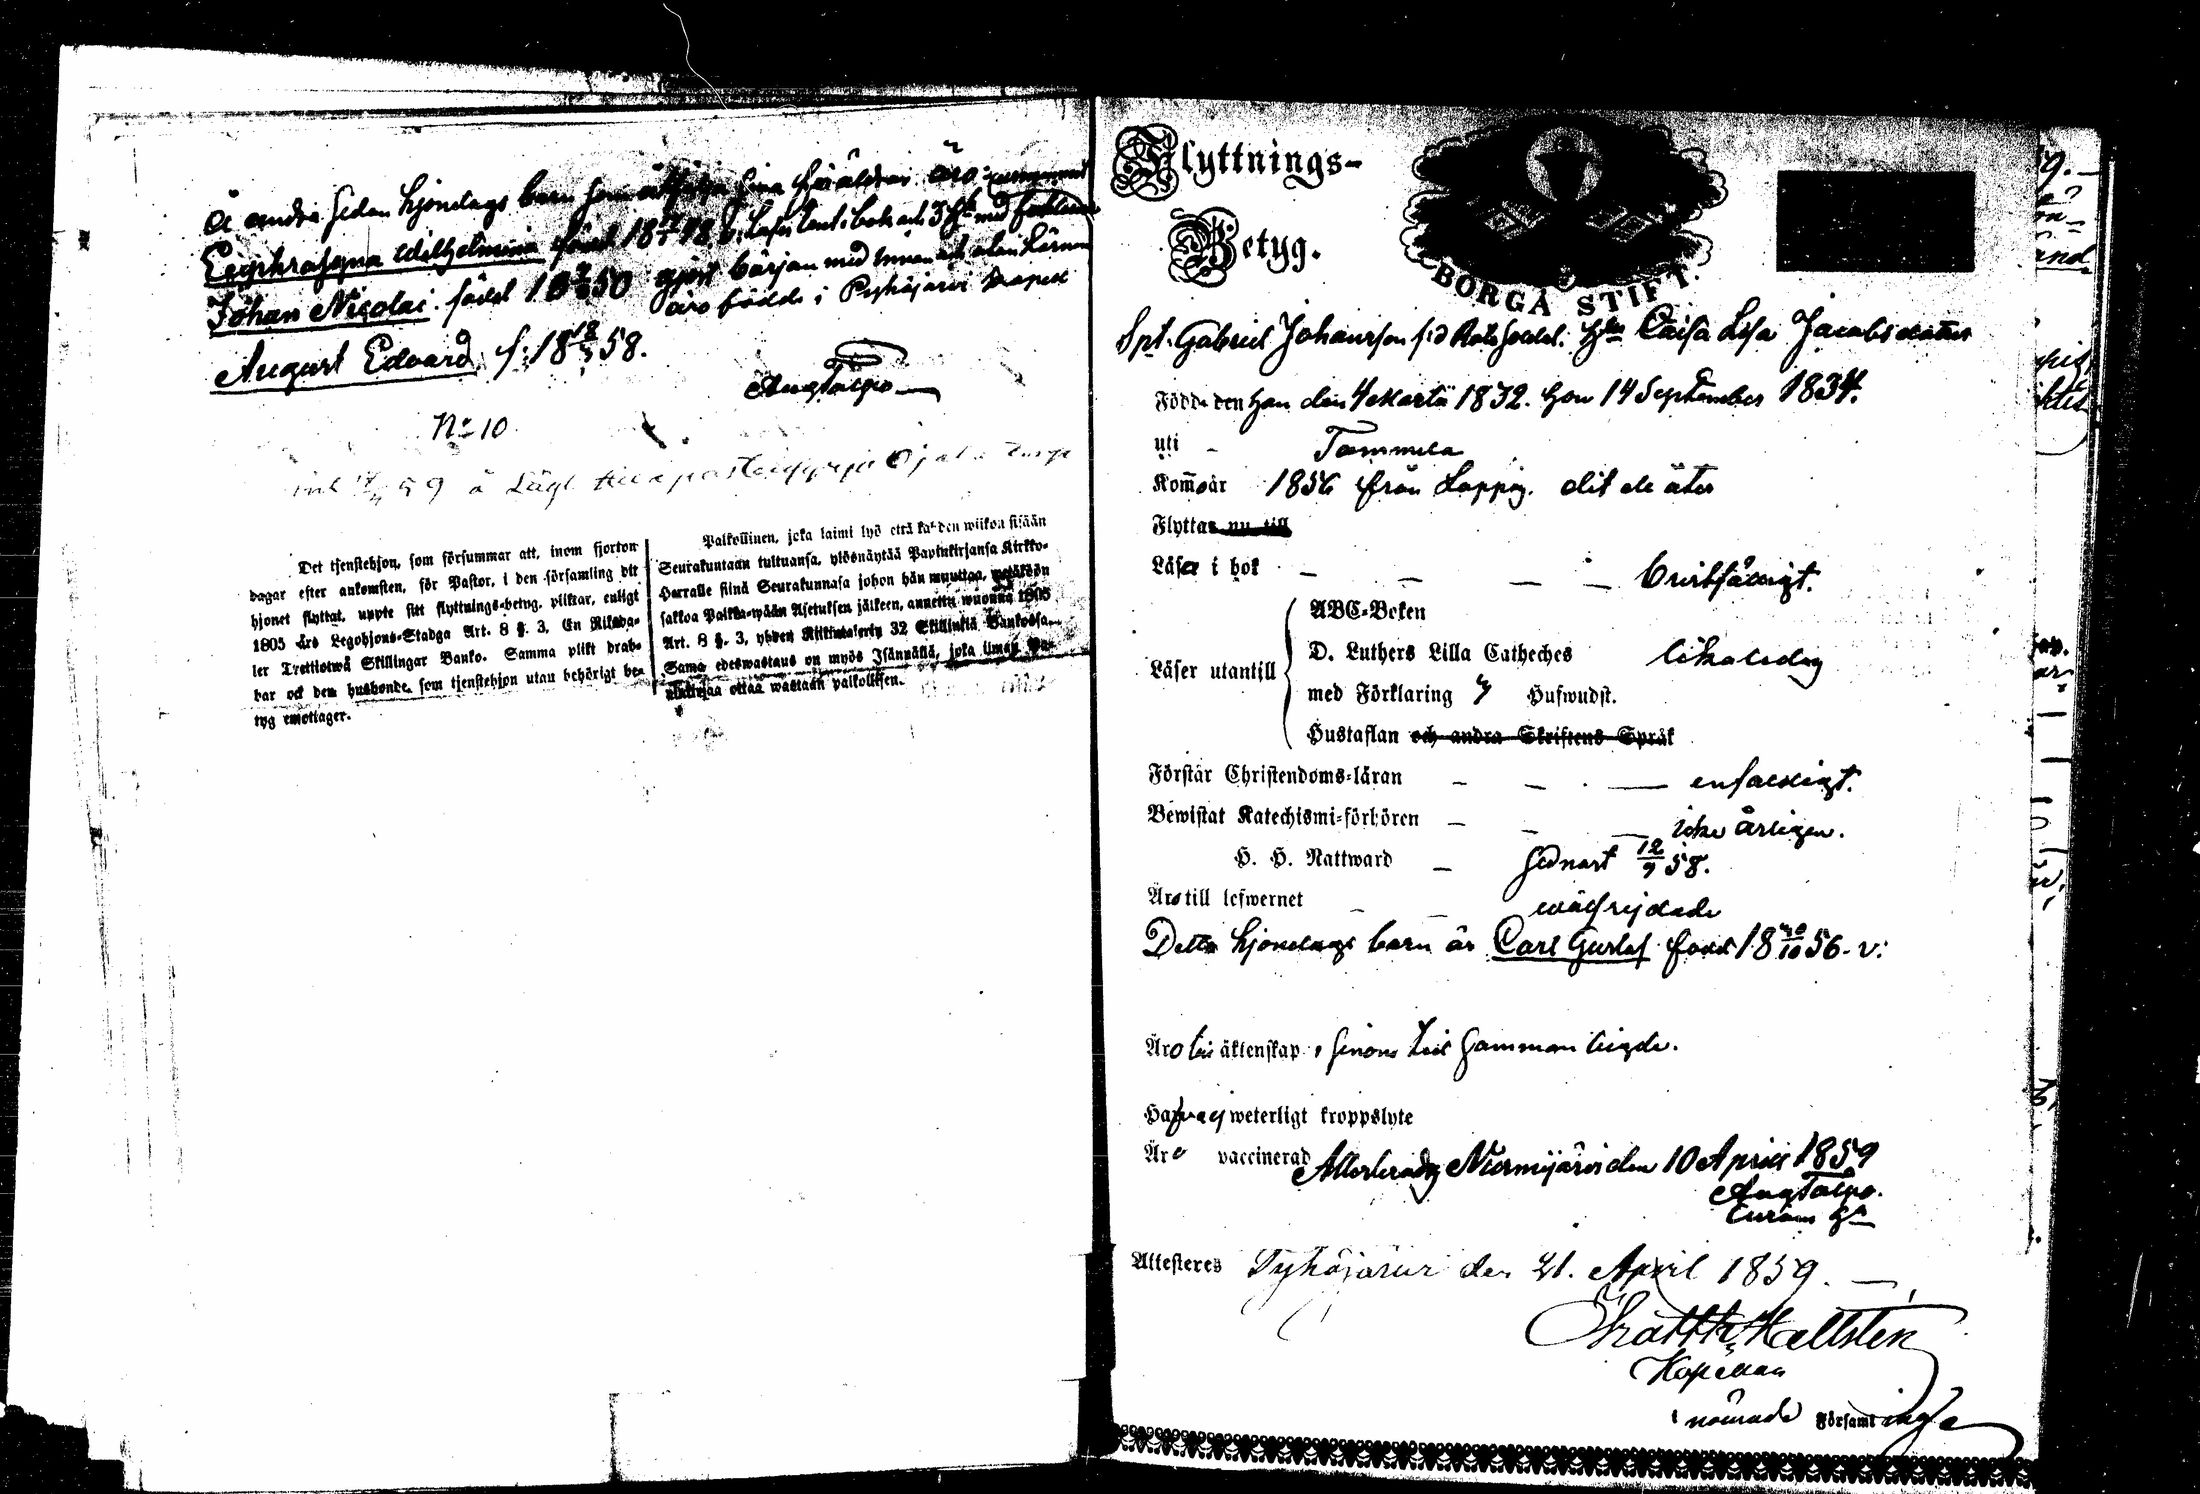 Å andra sidan hjondags barn som åtfölja sina föräldrar äro
Euphrosyna Wilhelmina född 18 48
Johan Nicolai. född 18 50 gjort början med innan och utan läsning
äro födde i Pyhäjärvi Kapell
August Edvard f: 18 18/3 58.
Aug Talpo
No 10
59 å Ojala torp
Det tjenstehjon, som försummar att, inom fjorton
dagar efter ankomsten, för Pastor, i den församling dit
hjonet flyttat, uppte sitt flyttnings-betyg, pliktar, enligt
1805 års Legohjons-Stadga Art. 8 §. 3, En Riksda-
ler Trettiotwå Skillingar Banko. Samma plikt drab-
bar ock den husbonde, som tjenstehjon utan behörigt be-
tyg emottager.
Palkollinen, joka laimi lyö että kahden wiikon sisään
Seurakuntaan tultuansa, ylösnäyttää Papinkirjansa Kirkko-
Herralle siinä Seurakunnasa johon hän muuttaa, wetäköön
sakkoa Palkka-wään Asetuksen jälkeen, annettu wuonna 1805
Art. 8 §. 3, yhden Riikintalerin 32 Skillinkiä Bankossa.
Sama edeswastaus on myös Isännällä, joka ilman
ottaa wastaan palkollisen.
Flyttnings-
Betyg.
BORGÅ STIFT.
Spt. Gabriel Johansson f:d Rote Soldat. Hu Caisa Lisa Jacobsdotter
Födde den han den 4 Martii 1832. hon 14 September 1834.
uti – Tammela
Kom̄o år 1856 från Loppis. dit de åter
Flyttar nu till
Läsa i bok – – – – bristfälligt.
ABC-Boken
Läser utantill
D. Luthers Lilla Catheches likaledes
med Förklaring Hufwudst.
Hustaflan och andra Skriftens Språk
Förstår Christendoms-läran – – – enfaldigt.
Bewistat Katechismi-förhören – – – icke årligen.
H. H. Nattward – sednast 12/9 58.
Äro till lefwernet – – wälfrejdade
Detta hjondags barn är Carl Gustaf född 18 20/10 56. v:
Äro i äktenskap, genom sammanvigde.
Hafva ej weterligt kroppslyte
Äro vaccinerad Attesterar Nurmijärvi den 10 April 1859
Aug Talpo.
Attesteres Pyhäjärvi den 21. April 1859.
Hellsten
Kapellan
i nämnde Församlingh